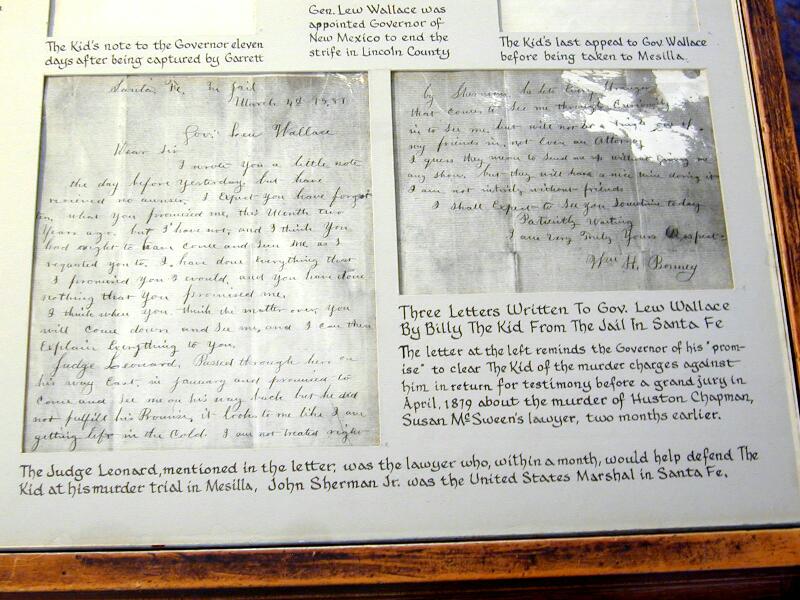 The Kid's note to the Governor eleven
days after being captured by Garrett
Gen. Lew Wallace was
appointed Governor of
New Mexico to end the
strife in Lincoln County
The Kid's last appeal to Gov Wallace
before being taken to Mesilla.
Santa Fe. In Jail
March 4th 1881
Gov. Lew Wallace
Dear Sir
I wrote You a little note
the day before Yesterday but have
received no answer. I Expect you have forgot
ten, what You promised me, this Month two
Years ago. but I have not, and I think You
had ought to have Come and Seen me as I
requested you to. I have done Everything that
I promised you I would, and You have done
nothing that You promised me.
I think when You think the matter over, You
will Come down and See me, and I can then
Explain Everything to You.
Judge Leonard, Passed through here on
his way East, in January and promised to
Come and See me on his way back but he did
not fulfill his Promise. it looks to me like I am
getting left in the Cold. I am not treated right
by Sherman. he lets Every Stranger
that comes to See me through Curiosity
in to See me, but will not let a Single one of
my friends in, not Even an Attorney
I guess they mean to Send me up without giving me
any Show. but they will have a nice time doing it
I am not intirely without friends
I Shall Expect to See you Sometime today
Patiently Waiting
I am Very truly Yours Respect-
Wm H. Bonney
Three Letters Written To Gov. Lew Wallace
By Billy The Kid From The Jail In Santa Fe
The letter at the left reminds the Governor of his "prom-
ise" to clear The Kid of the murder charges against
him in return for testimony before a grand jury in
April, 1879 about the murder of Huston Chapman,
Susan McSween's lawyer, two months earlier.
The Judge Leonard, mentioned in the letter, was the lawyer who, within a month, would help defend The
Kid at his murder trial in Mesilla, John Sherman Jr. was the United States Marshal in Santa Fe.